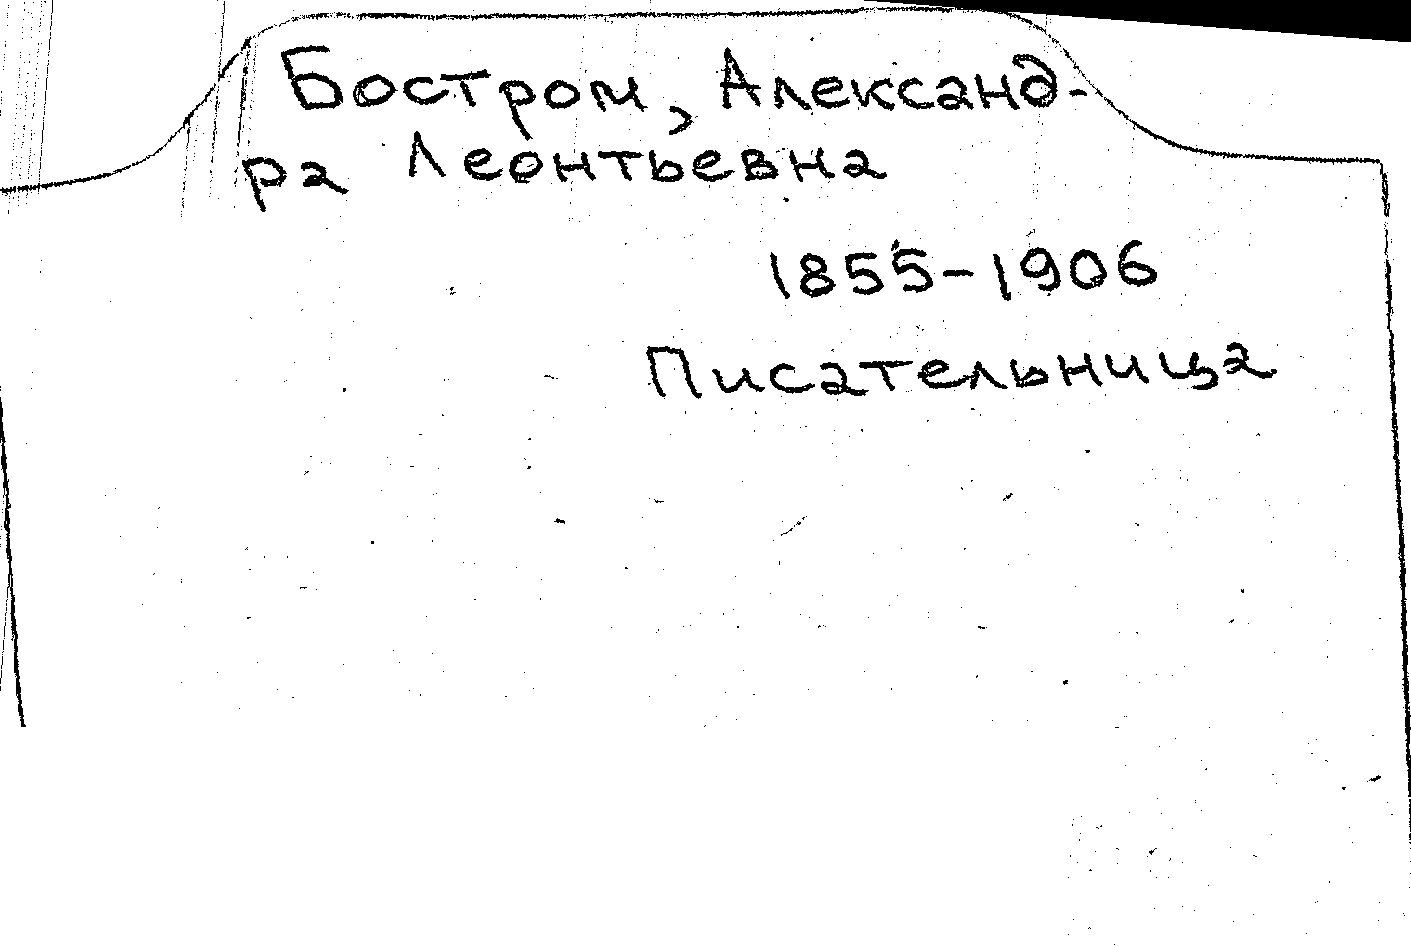 Бостром, Александ-
ра Леонтьевна
1855-1906
Писательница